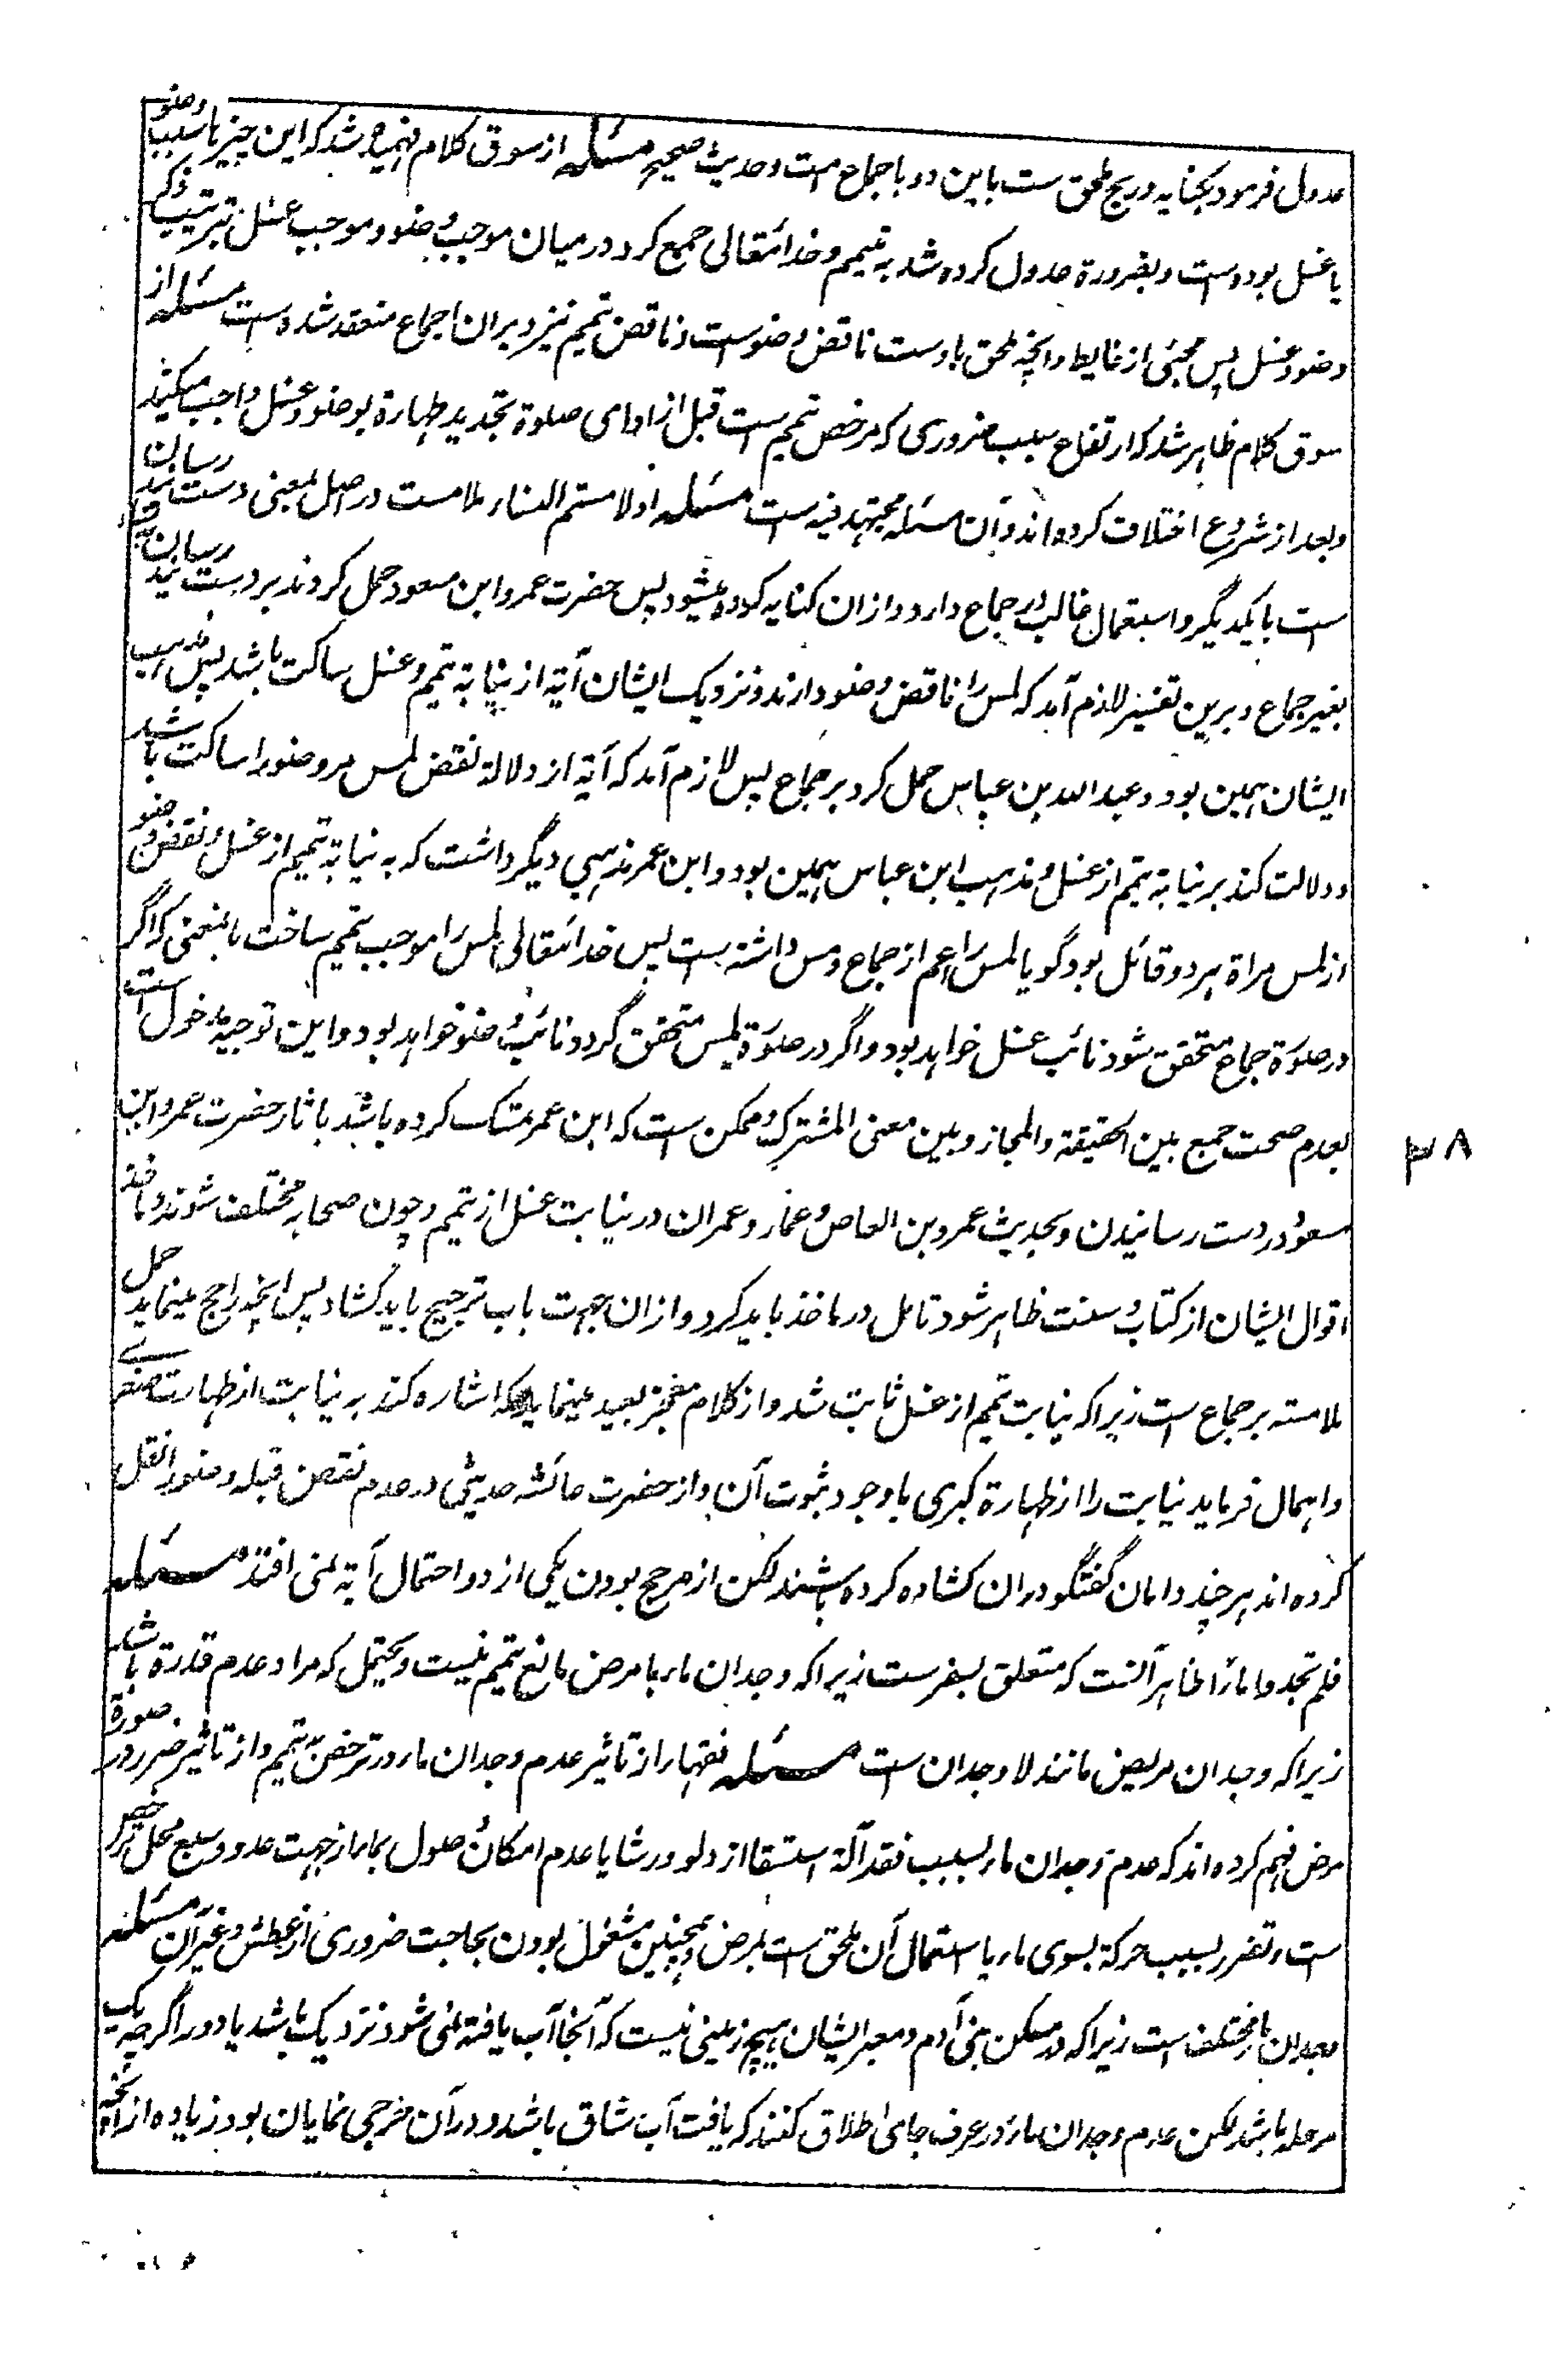 عدول فرمود بکنایه و ریح ملحق ست باین دو باجماع امت و حدیث صحیح مسئله از سوق کلام فهمیده شد که این چیزها سبب وضو
یا غسل بوده است و بضرورة عدول کرده شد به تیمم و خدا تعالی جمع کرد در میان موجب وضو و موجب غسل بترتیب ذکر
وضو و غسل پس مجیئی از غایط و انچه ملحق باوست ناقض وضوست و ناقض تیمم نیز و بران اجماع منعقد شده است مسئله از
سوق کلام ظاهر شد که ارتفاع سبب ضروری که مرخص تیمم است قبل از ادای صلوة تجدید طهارة بوضو و غسل واجب میکند
و بعد از شروع اختلاف کرده اند و آن مسئله مجتهد فیه ست مسئله اولامستم النساء ملامست در اصل بمعنی دست رسانیدن
ست با یکدیگر و استعمال غالب در جماع دارد و ازان کنایه کرده میشود پس حضرت عمر و ابن مسعود حمل کردند بر دست رسانیدن
بغیر جماع و برین تفسیر لازم آمد که لمس را ناقض وضو دارند و نزدیک ایشان آیة از نیابة تیمم و غسل ساکت باشد پس مذهب
ایشان همین بود و عبد الله بن عباس حمل کرد بر جماع پس لازم آمد که آیة از دلالة نقض لمس مر وضو را ساکت باشد
و دلالت کند بر نیابة تیمم از غسل و مذهب ابن عباس همین بود و ابن عمر مذهبی دیگر داشت که به نیابة تیمم از غسل و نقض وضو
از لمس مراة هر دو قائل بود گویا لمس را اعم از جماع و مس داشته است پس خدا تعالی لمس را موجب تیمم ساخت باینمعنی که اگر
در صورة جماع متحقق شود نائب غسل خواهد بود و اگر در صورة لمس متحقق گردد نائب وضو خواهد بود و این توجیه مدخول است
بعدم صحت جمع بین الحقیقة والمجاز و بین معنی المشترک و ممکن ست که ابن عمر تمسک کرده باشد باثار حضرت عمر و ابن
مسعود در دست رسانیدن و بحدیث عمرو بن العاص و عمار و عمران در نیابت غسل از تیمم و چون صحابه مختلف شوند و ماخذ
اقوال ایشان از کتاب و سنت ظاهر شود تامل در ماخذ باید کرد و ازان جهت باب ترجیح باید کشاد پس انچه راجح مینماید حمل
ملامسته بر جماع ست زیرا که نیابت تیمم از غسل ثابت شد و از کلام معجز بعید مینماید که اشاره کند به نیابت از طهارت صغرے
و اهمال فرماید نیابت را از طهارة کبری با وجود ثبوت آن و از حضرت عائشه حدیثی در عدم نقض قبله وضو را نقل
کرده اند هر چند دامان گفتگو دران کشاده کرده باشند لکن از مرجح بودن یکی از دو احتمال آیة نمی افتد مسئله
فلم تجدوا ماءً ظاهر آنست که متعلق بسفرست زیرا که وجدان ماء با مرض مانع تیمم نیست و یحتمل که مراد عدم قدرة باشد
زیرا که وجدان مریض مانند لا وجدان ست مسئله فقها را از تاثیر عدم وجدان ماء در ترخص تیمم و از تاثیر ضرر در صورة
مرض فهم کرده اند که عدم وجدان ماء بسبب فقد آلة استسقا از دلو و رشا یا عدم امکان وصول بماء از جهت عدو و سبع محل ترخص
ست و تضرر بسبب حرکة بسوی ماء یا استعمال آن ملحق ست بمرض و همچنین مشغول بودن بحاجت ضروری از عطش و غیر آن مسئله
وجدان ماء مختلف است زیرا که در مسکن بنی آدم و معبر ایشان هیچ زمینی نیست که آنجا آب یافته نمی شود نزدیک باشد یا دور اگرچه یک
مرحله باشد لکن عدم وجدان ماء در عرف جای اطلاق کنند که یافت آب شاق باشد و در آن حرجی نمایان بود زیاده از انچه
۳۸